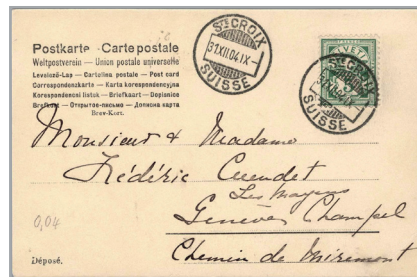 Postkarte - Carte postale
Weltpostverein — Union postale universelle
Levelező-Lap — Cartolina postale — Post card
Correspondenzkarte — Karta korespondencyjna
Korespondenční lístek — Briefkaart — Dopisnice
Brefkort — Открытое письмо — Дописна карта
Brev-Kort.
STE CROIX
31.XII.04.IX-
SUISSE
HELVETIA
STE CROIX
SUISSE
Monsieur & Madame
Frédéric Cuendet
Les Mayens
Genève Champel
Chemin de Miremont
0,04
Déposé.